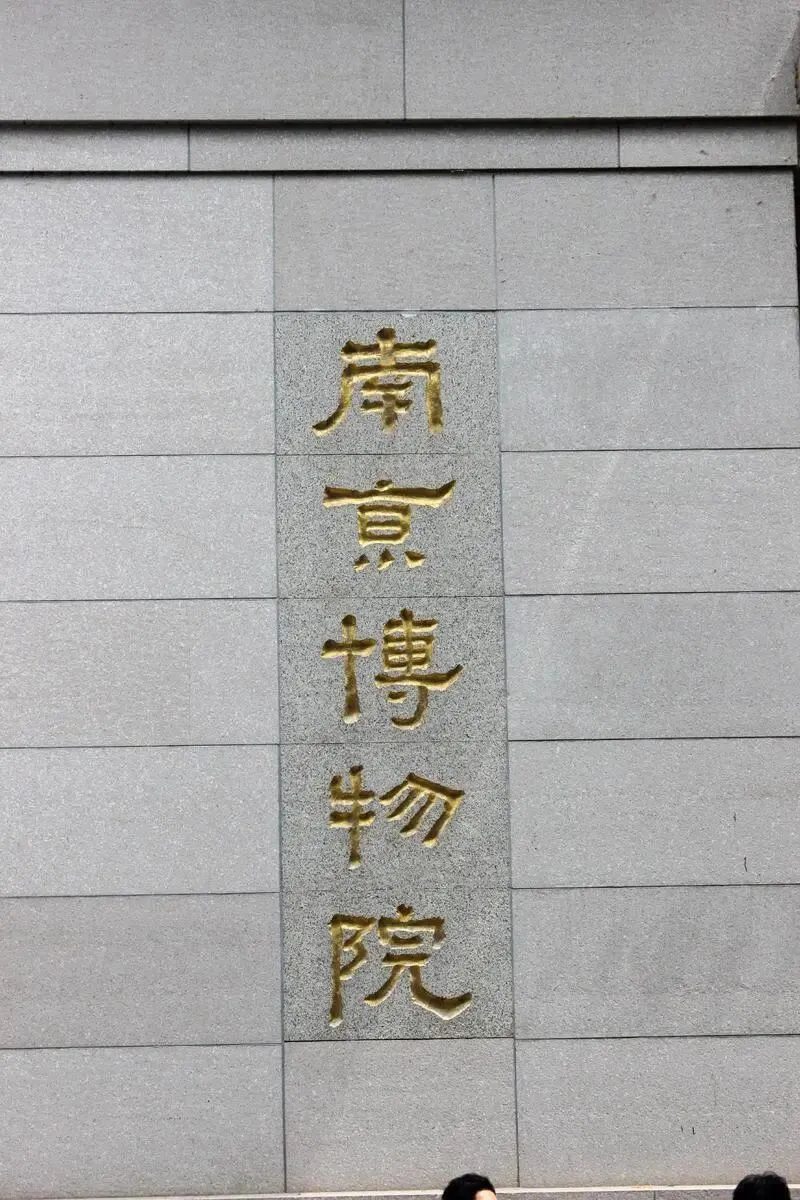 南京博物院